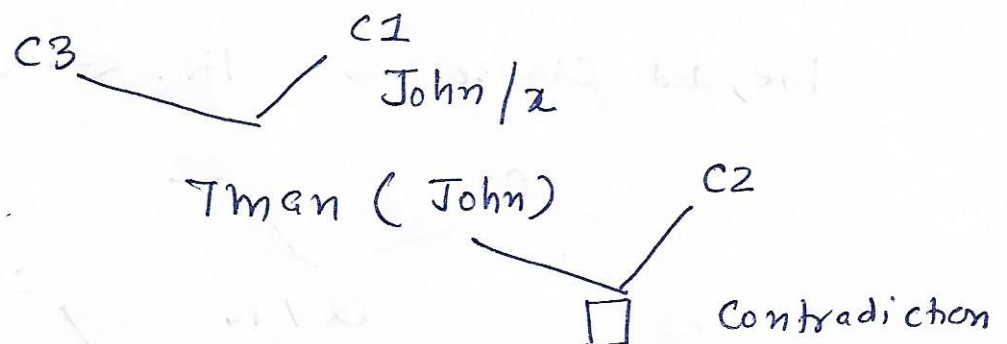 C3 C1
John/x
7man (John) C2
□ Contradiction